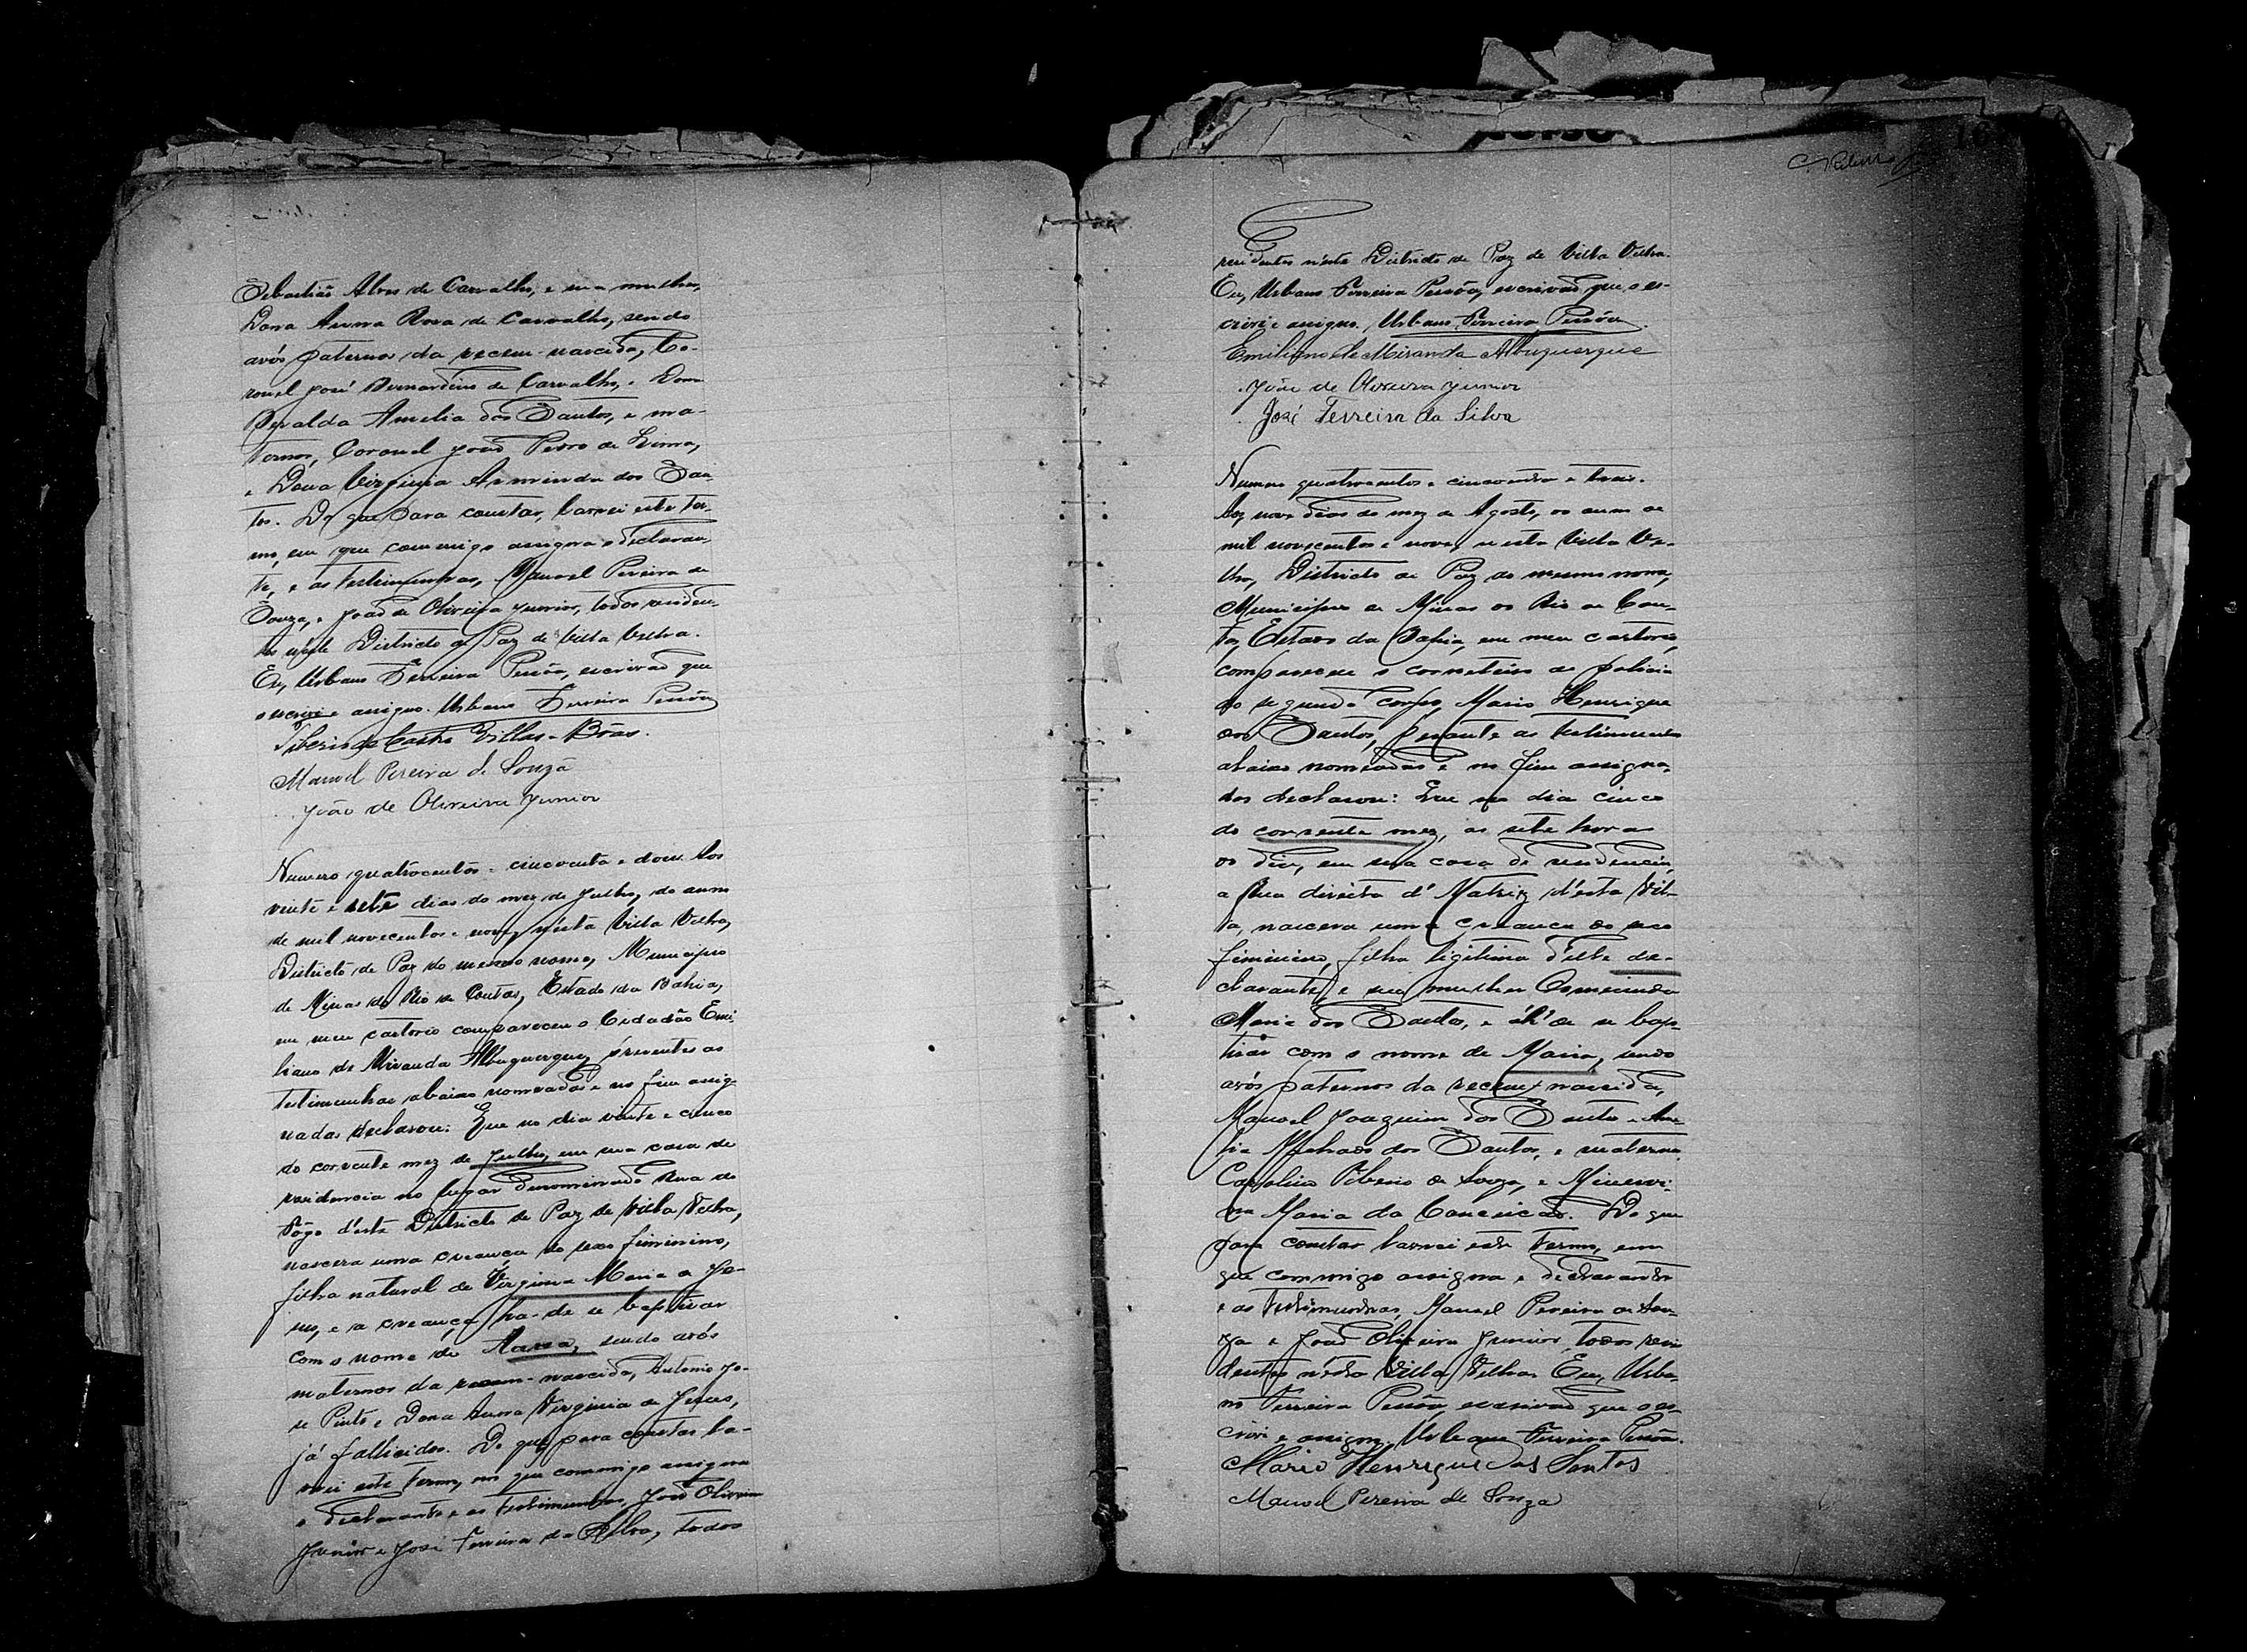 Sebastião Alves de Carvalho, e sua mulher,
Dona Anna Rosa de Carvalho, sendo
avós paternos da recem-nascida, Co-
ronel José Bernardino de Carvalho, e Dona
Amelia dos Santos, e ma-
ternos, Coronel João Pedro de Lima,
e Dona Virginia Arminda dos San-
tos. Do que para constar, lavrei este ter-
mo, em que commigo assigna o declaran-
te, e as testimunhas, Manoel Pereira de
Souza, e João de Oliveira Junior, todos residen-
tes neste Districto de Paz de Villa Velha.
Eu, Urbano Ferreira Pessôa, escrivão que
o escrivi e assigno. Urbano Ferreira Pessôa
Tiberio de Castro Villas-Bôas.
Manoel Pereira de Souza
João de Oliveira Junior
Numero quatrocentos e cincoenta e dous. Aos
vinte e sete dias do mez de Julho, do anno
de mil novecentos e nove, n'esta Villa Velha,
Districto de Paz do mesmo nome, Municipio
de Minas do Rio de Contas, Estado da Bahia,
em meu cartorio compareceu o Cidadão Emi-
liano de Miranda Albuquerque, presentes as
testimunhas abaixo nomeadas e no fim assig-
nadas declarou: Que no dia vinte e cinco
do corrente mez de Julho, em sua casa de
residencia no lugar denominado Rua do
Fôgo d'este Districto de Paz de Villa Velha,
nascera uma creança do sexo feminino,
filha natural de Virginia Maria de Je-
sus, e a creança ha-de se baptisar
com o nome de Anna, sendo avós
maternos da recem-nascida, Antonio Jo-
se Pinto e Dona Anna Virginia de Jesus,
já fallicidos. Do que para constar la-
vrei este termo, em que commigo assigna
o declarante e as testimunhas, João Oliveira
Junior e José Ferreira da Silva, todos
16
residentes n'este Districto de Paz de Villa Velha.
Eu, Urbano Ferreira Pessôa, escrivão que o es-
crivi e assigno. Urbano Ferreira Pessôa
Emiliano de Miranda Albuquerque
João de Oliveira Junior
José Ferreira da Silva
Numero quatrocentos e cincoenta e trais.
Aos nove dias do mez de Agosto, do anno de
mil novecentos e nove, n'esta Villa Ve-
lha, Districto de Paz do mesmo nome,
Municipio de Minas do Rio de Con-
tas, Estado da Bahia, em meu cartorio,
compareceu o corneteiro de policia
do segundo corpo, Mario Henrique
dos Santos, perante as testimunhas
abaixo nomeadas e no fim assigna-
das declarou: Que no dia cinco
do corrente mez, as sete horas
do dia, em sua casa de residencia,
a Rua direita d' Matriz d'esta Vil-
la, nascera uma creança do sexo
feminino, filha ligitima d'elle de-
clarante, e sua mulher Osmeinda
Maria dos Santos, e há de se bap-
tisar com o nome de Maria, sendo
avós paternos da recem nascida,
Manoel Joaquim dos Santos e Ame-
lia Machado dos Santos, e maternos
Carolino Tiberio de Souza, e Minervi-
na Maria da Conceição. Do que
para constar lavrei este termo, em
que commigo assigna o declarante
e as testimunhas, Manoel Pereira de Sou-
za e João Oliveira Junior, todos resi-
dentes n'esta Villa Velha. Eu, Urba-
no Ferreira Pessôa, escrivão que o es-
crivi e assigno. Urbano Ferreira Pessôa.
Mario Henrique dos Santos
Manoel Pereira de Souza